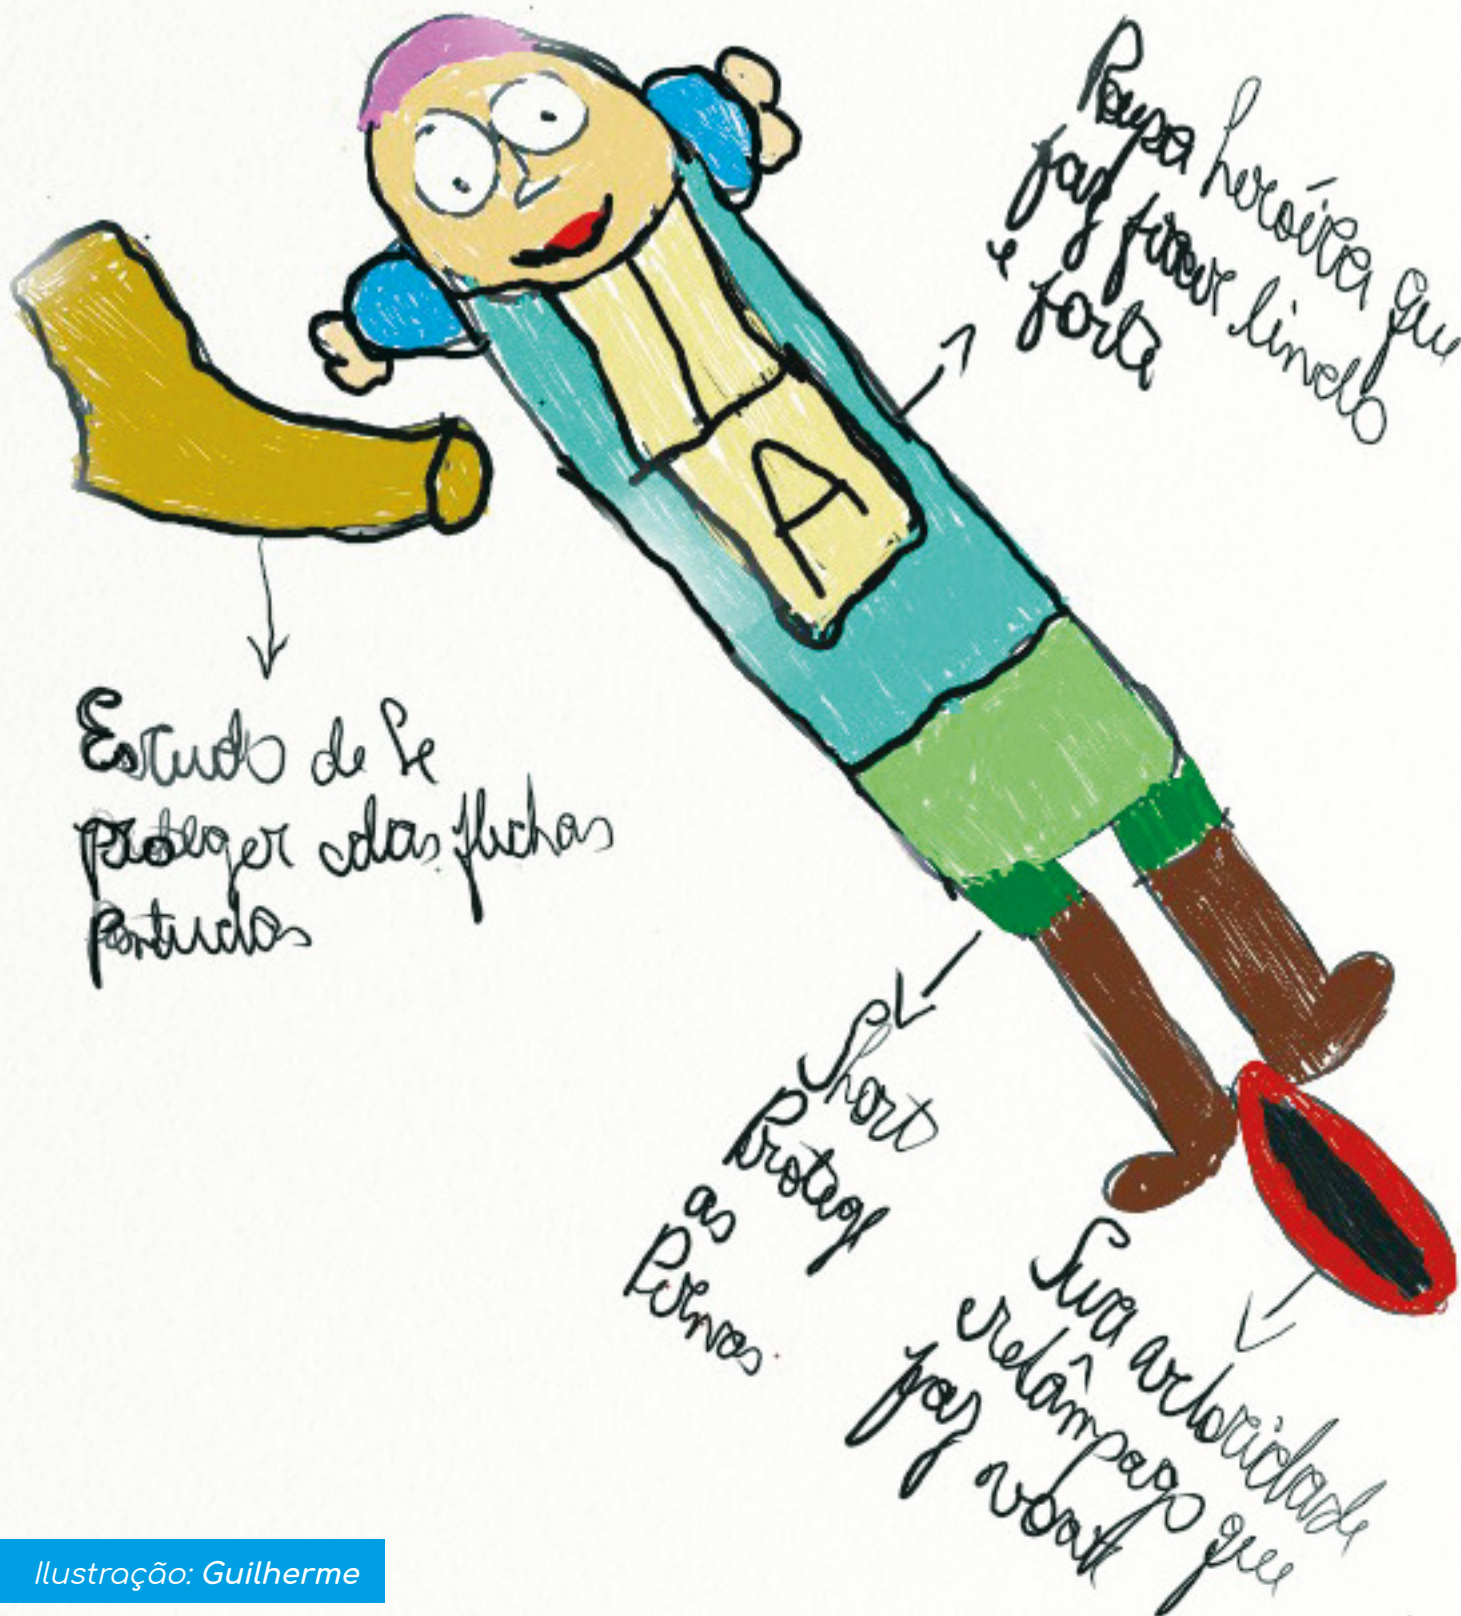 Roupa heróica que
faz ficar lindo
e forte
A
Escudo de se
proteger das flechas
pontudas
Short
Protege
as
Pernas.
Sua velocidade
relâmpago que
faz voar
Ilustração: Guilherme